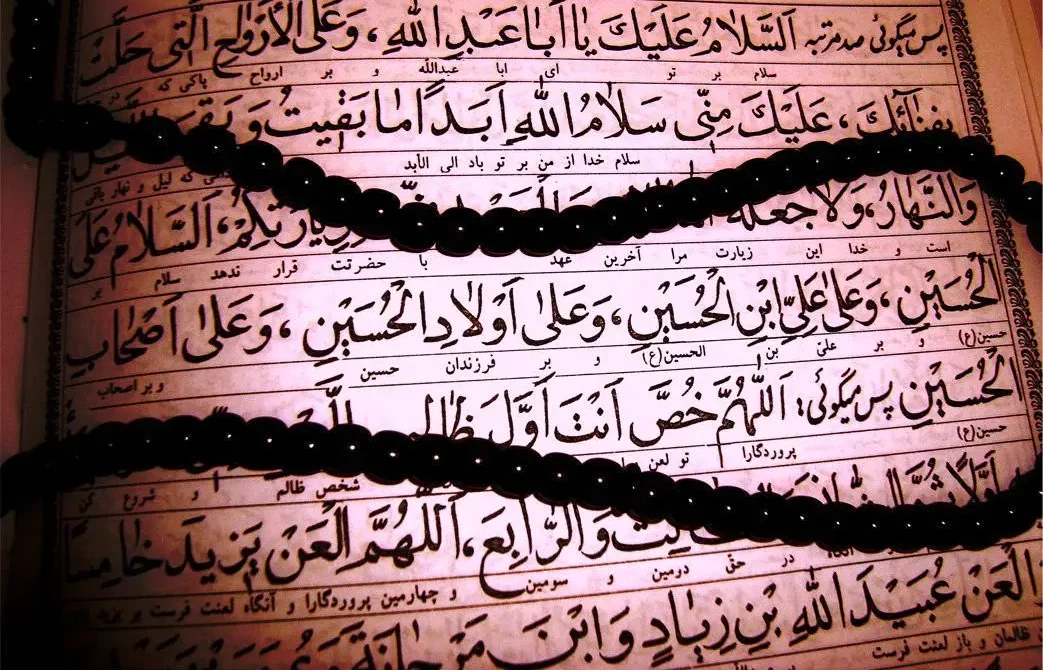 پس میگوئی صد مرتبه اَلسَّلامُ عَلَیْكَ یا اَباعَبْدِاللّٰهِ، وَعَلَی الْاَرْواحِ الَّتی حَلَّتْ
سلام بر تو ای ابا عبدالله و بر ارواح پاکی که در
بِفِنآئِكَ، عَلَیْكَ مِنّی سَلامُ اللّٰهِ اَبَدًا ما بَقیتُ وَ بَقِیَ
سلام خدا از من بر تو باد الی الأبد که لیل و نهار باقی
وَالنَّهارُ، وَلا جَعَلَهُ لِزِیارَتِکُمْ، اَلسَّلامُ عَلَی
است و خدا این زیارت مرا آخرین عهد با حضرتت قرار ندهد سلام بر
الْحُسَیْنِ، وَعَلی عَلِیِّ ابْنِ الْحُسَیْنِ، وَعَلی اَوْلادِ الْحُسَیْنِ، وَعَلی اَصْحابِ
حسین(ع) و بر علیّ بن الحسین(ع) و بر فرزندان حسین و بر اصحاب
الْحُسَیْنِ پس میگوئی: اَللّٰهُمَّ خُصَّ اَنْتَ اَوَّلَ ظالِمٍ
حسین(ع) پروردگارا تو لعن شخص ظالم و شروع کن
اَوَّلًا ثُمَّ وَالرّابِعَ، اَللّٰهُمَّ الْعَنْ یَزیدَ خامِسًا
آنگاه در حقّ دومین و سومین و چهارمین پروردگارا و آنگاه لعنت فرست بر یزید
وَالْعَنْ عُبَیْدَاللّٰهِ بْنِ زِیادٍ وَابْنَ مَرْجانَةَ
ظالمان و باز لعنت فرست